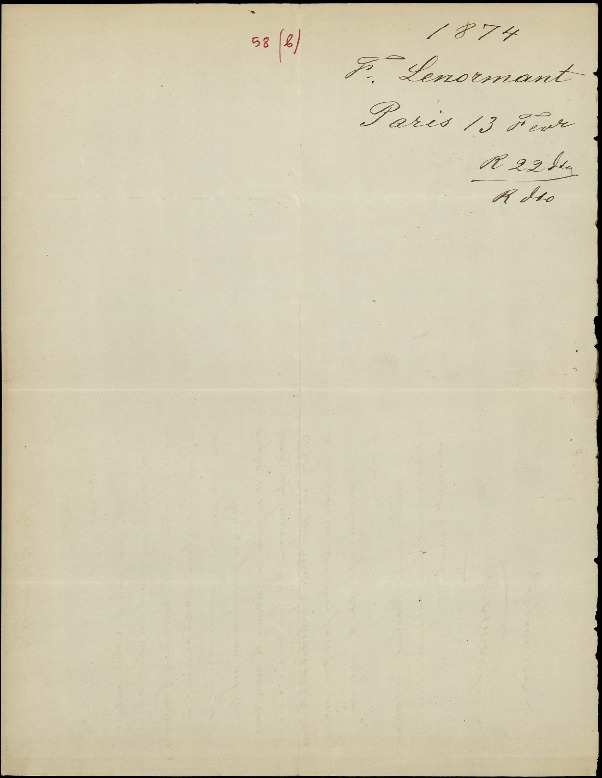 58 (b)
1874
F. Lenormant
Paris 13 Fevr
R 22 dto
R dto